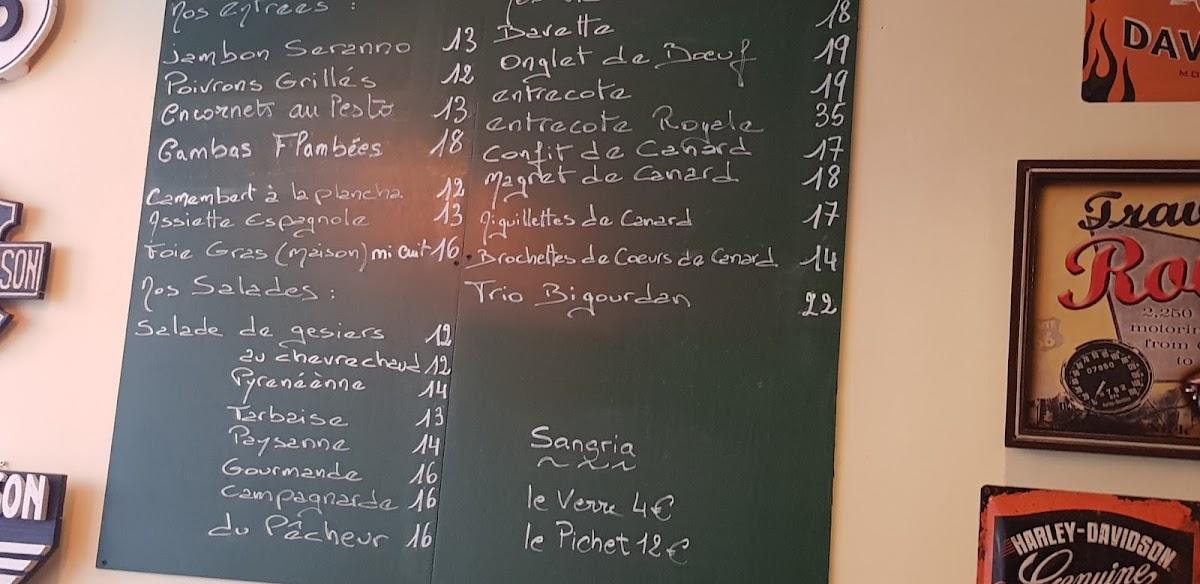 Nos entrées :
Jambon Seranno 13
Poivrons Grillés 12
Encornets au Pesto 13
Gambas Flambées 18
Camembert à la plancha 12
Assiette Espagnole 13
Foie Gras (maison) mi cuit 16
Nos Salades :
Salade de gesiers 12
au chevre chaud 12
Pyrenéènne 14
Tarbaise 13
Paysanne 14
Gourmande 16
Campagnarde 16
du Pêcheur 16
18
Bavette
Onglet de Boeuf 19
entrecote 19
entrecote Royale 35
Confit de Canard 17
Magret de Canard 18
Aiguillettes de Canard 17
Brochettes de Coeurs de Canard 14
Trio Bigourdan 22
Sangria
le Verre 4€
le Pichet 12€
SON
SON
DAV
Trav
Rou
2,250
motorin
from
to
HARLEY-DAVIDSON
Genuine